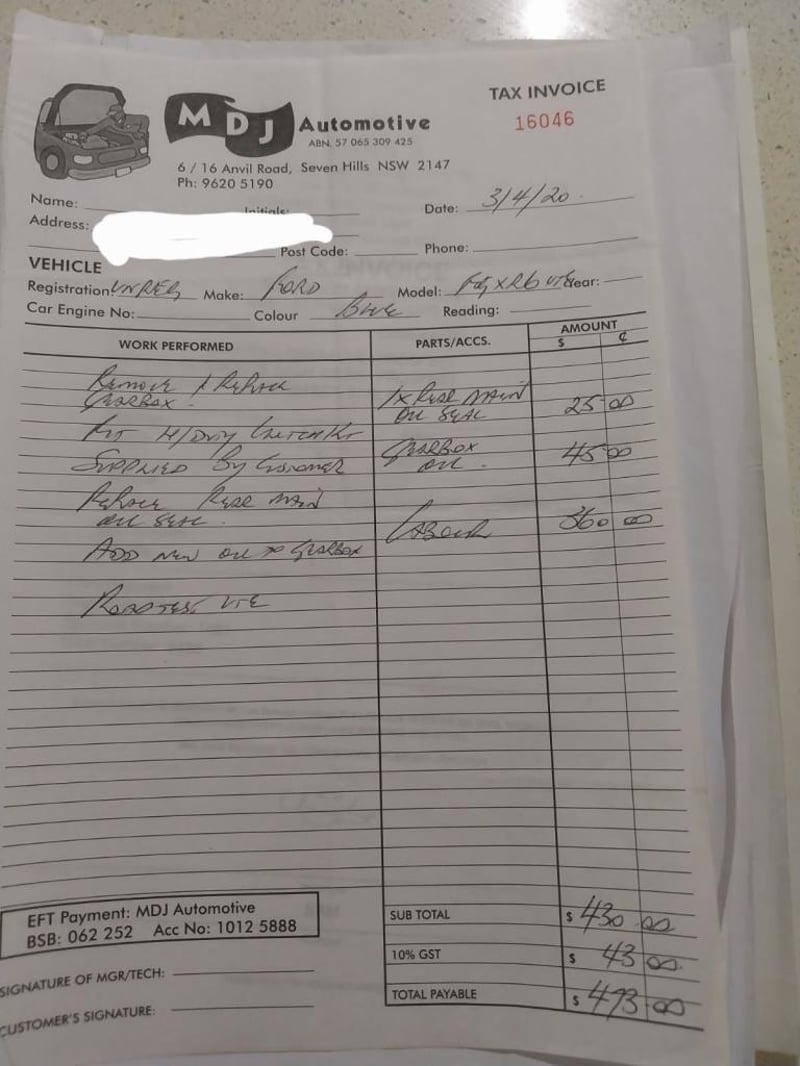 MDJ Automotive
TAX INVOICE
16046
ABN. 57 065 309 425
6 / 16 Anvil Road, Seven Hills NSW 2147
Ph: 9620 5190
Name: Initials: Date: 3/4/20
Address:
Post Code: Phone:
VEHICLE
Registration: UNREG Make: FORD Model: XR6 UTE Year:
Car Engine No: Colour BLUE Reading:
WORK PERFORMED PARTS/ACCS. AMOUNT
$ ¢
Remove & Replace
GEARBOX 1x REAR MAIN
OIL SEAL 25 00
FIT H/DUTY CLUTCH KIT
SUPPLIED By CUSTOMER GEARBOX
OIL. 45 00
REPLACE REAR MAIN
OIL SEAL. LABOUR 360 00
ADD NEW OIL TO GEARBOX
ROADTEST UTE
EFT Payment: MDJ Automotive
BSB: 062 252 Acc No: 1012 5888
SUB TOTAL $ 430 00
10% GST $ 43 00
TOTAL PAYABLE $ 473 00
SIGNATURE OF MGR/TECH:
CUSTOMER'S SIGNATURE: